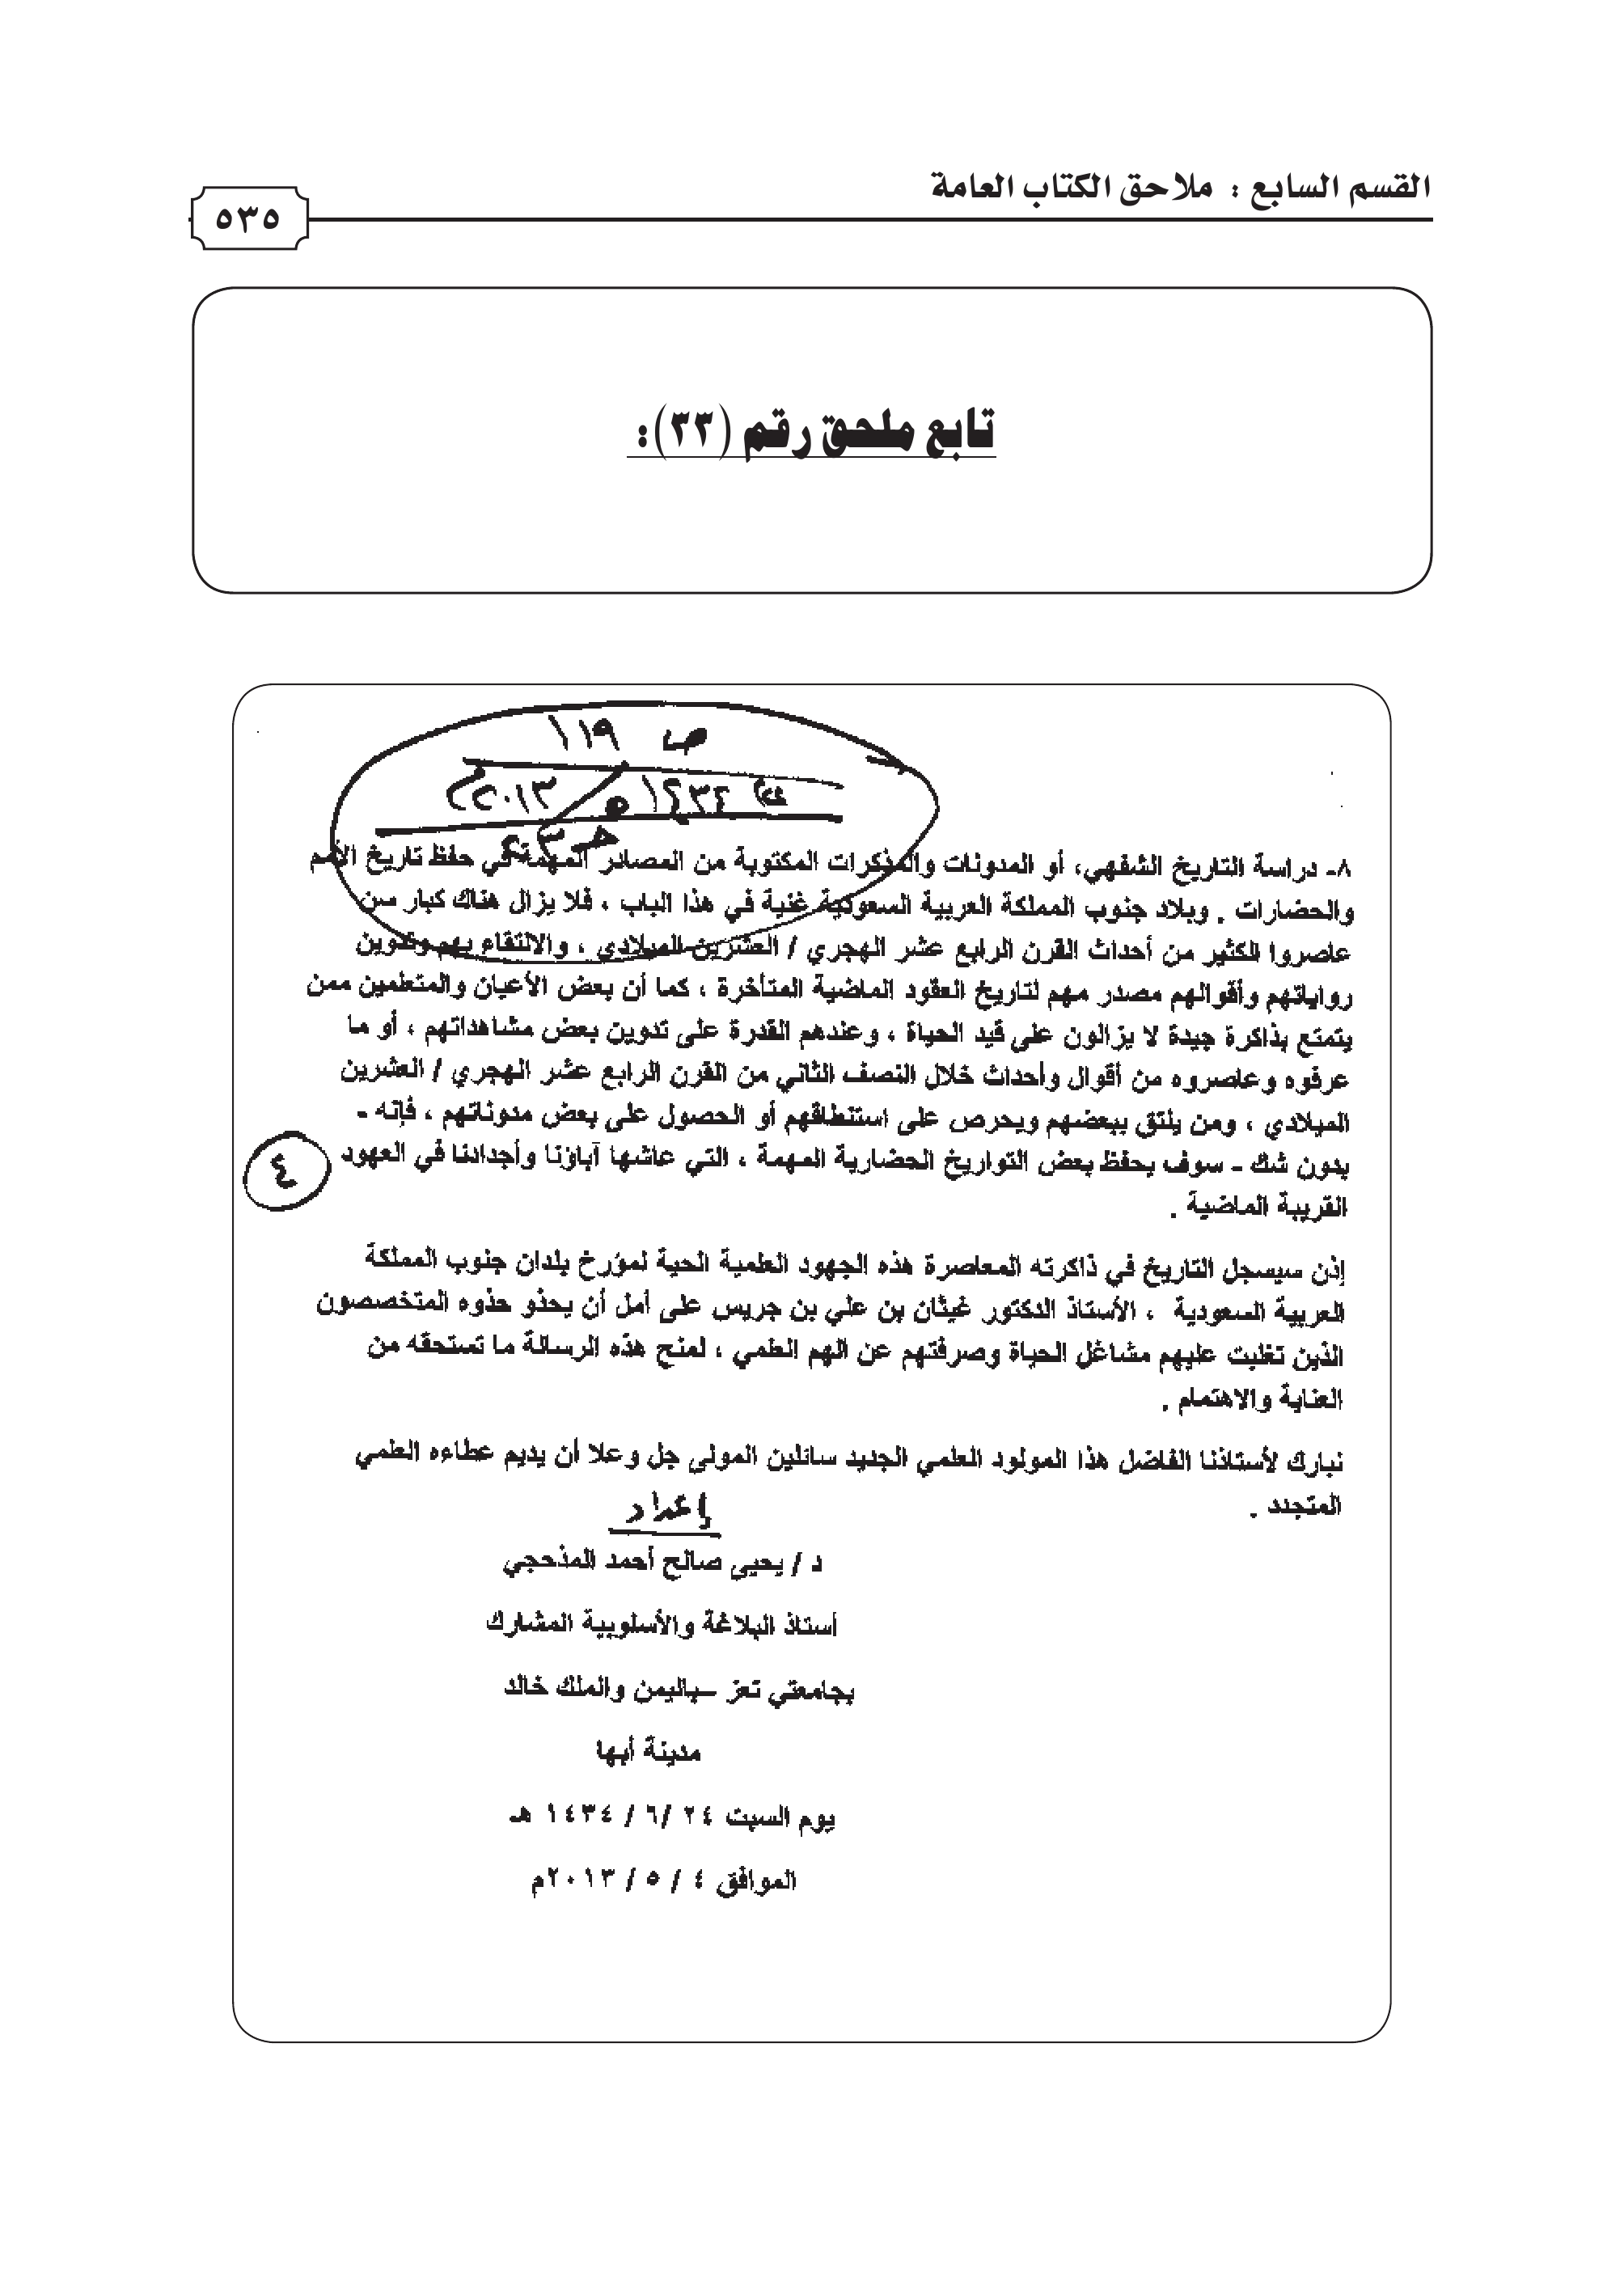 القسم السابع : ملاحق الكتاب العامة
٥٣٥
تابع ملحق رقم (٣٣):
ص ١١٩
١٤٣٤ هـ / ٢٠١٣م
٨- دراسة التاريخ الشفهي، أو المدونات والمذكرات المكتوبة من المصادر المهمة في حفظ تاريخ الأمم
والحضارات . وبلاد جنوب المملكة العربية السعودية غنية في هذا الباب ، فلا يزال هناك كبار سن
عاصروا الكثير من أحداث القرن الرابع عشر الهجري / العشرين الميلادي ، والالتقاء بهم وتدوين
رواياتهم وأقوالهم مصدر مهم لتاريخ العقود الماضية المتأخرة ، كما أن بعض الأعيان والمتعلمين ممن
يتمتع بذاكرة جيدة لا يزالون على قيد الحياة ، وعندهم القدرة على تدوين بعض مشاهداتهم ، أو ما
عرفوه وعاصروه من أقوال وأحداث خلال النصف الثاني من القرن الرابع عشر الهجري / العشرين
الميلادي ، ومن يلتق ببعضهم ويحرص على استنطاقهم أو الحصول على بعض مدوناتهم ، فإنه -
بدون شك - سوف يحفظ بعض التواريخ الحضارية المهمة ، التي عاشها آباؤنا وأجدادنا في العهود
٤
القريبة الماضية .
إذن سيسجل التاريخ في ذاكرته المعاصرة هذه الجهود العلمية الحية لمؤرخ بلدان جنوب المملكة
العربية السعودية ، الأستاذ الدكتور غيثان بن علي بن جريس على أمل أن يحذو حذوه المتخصصون
الذين تغلبت عليهم مشاغل الحياة وصرفتهم عن الهم العلمي ، لمنح هذه الرسالة ما تستحقه من
العناية والاهتمام .
نبارك لأستاذنا الفاضل هذا المولود العلمي الجديد سائلين المولى جل وعلا أن يديم عطاءه العلمي
المتجدد .
إعداد
د / يحيى صالح أحمد المذحجي
أستاذ البلاغة والأسلوبية المشارك
بجامعتي تعز –باليمن والملك خالد
مدينة أبها
يوم السبت ٢٤ /٦ / ١٤٣٤ هـ
الموافق ٤ / ٥ / ٢٠١٣م